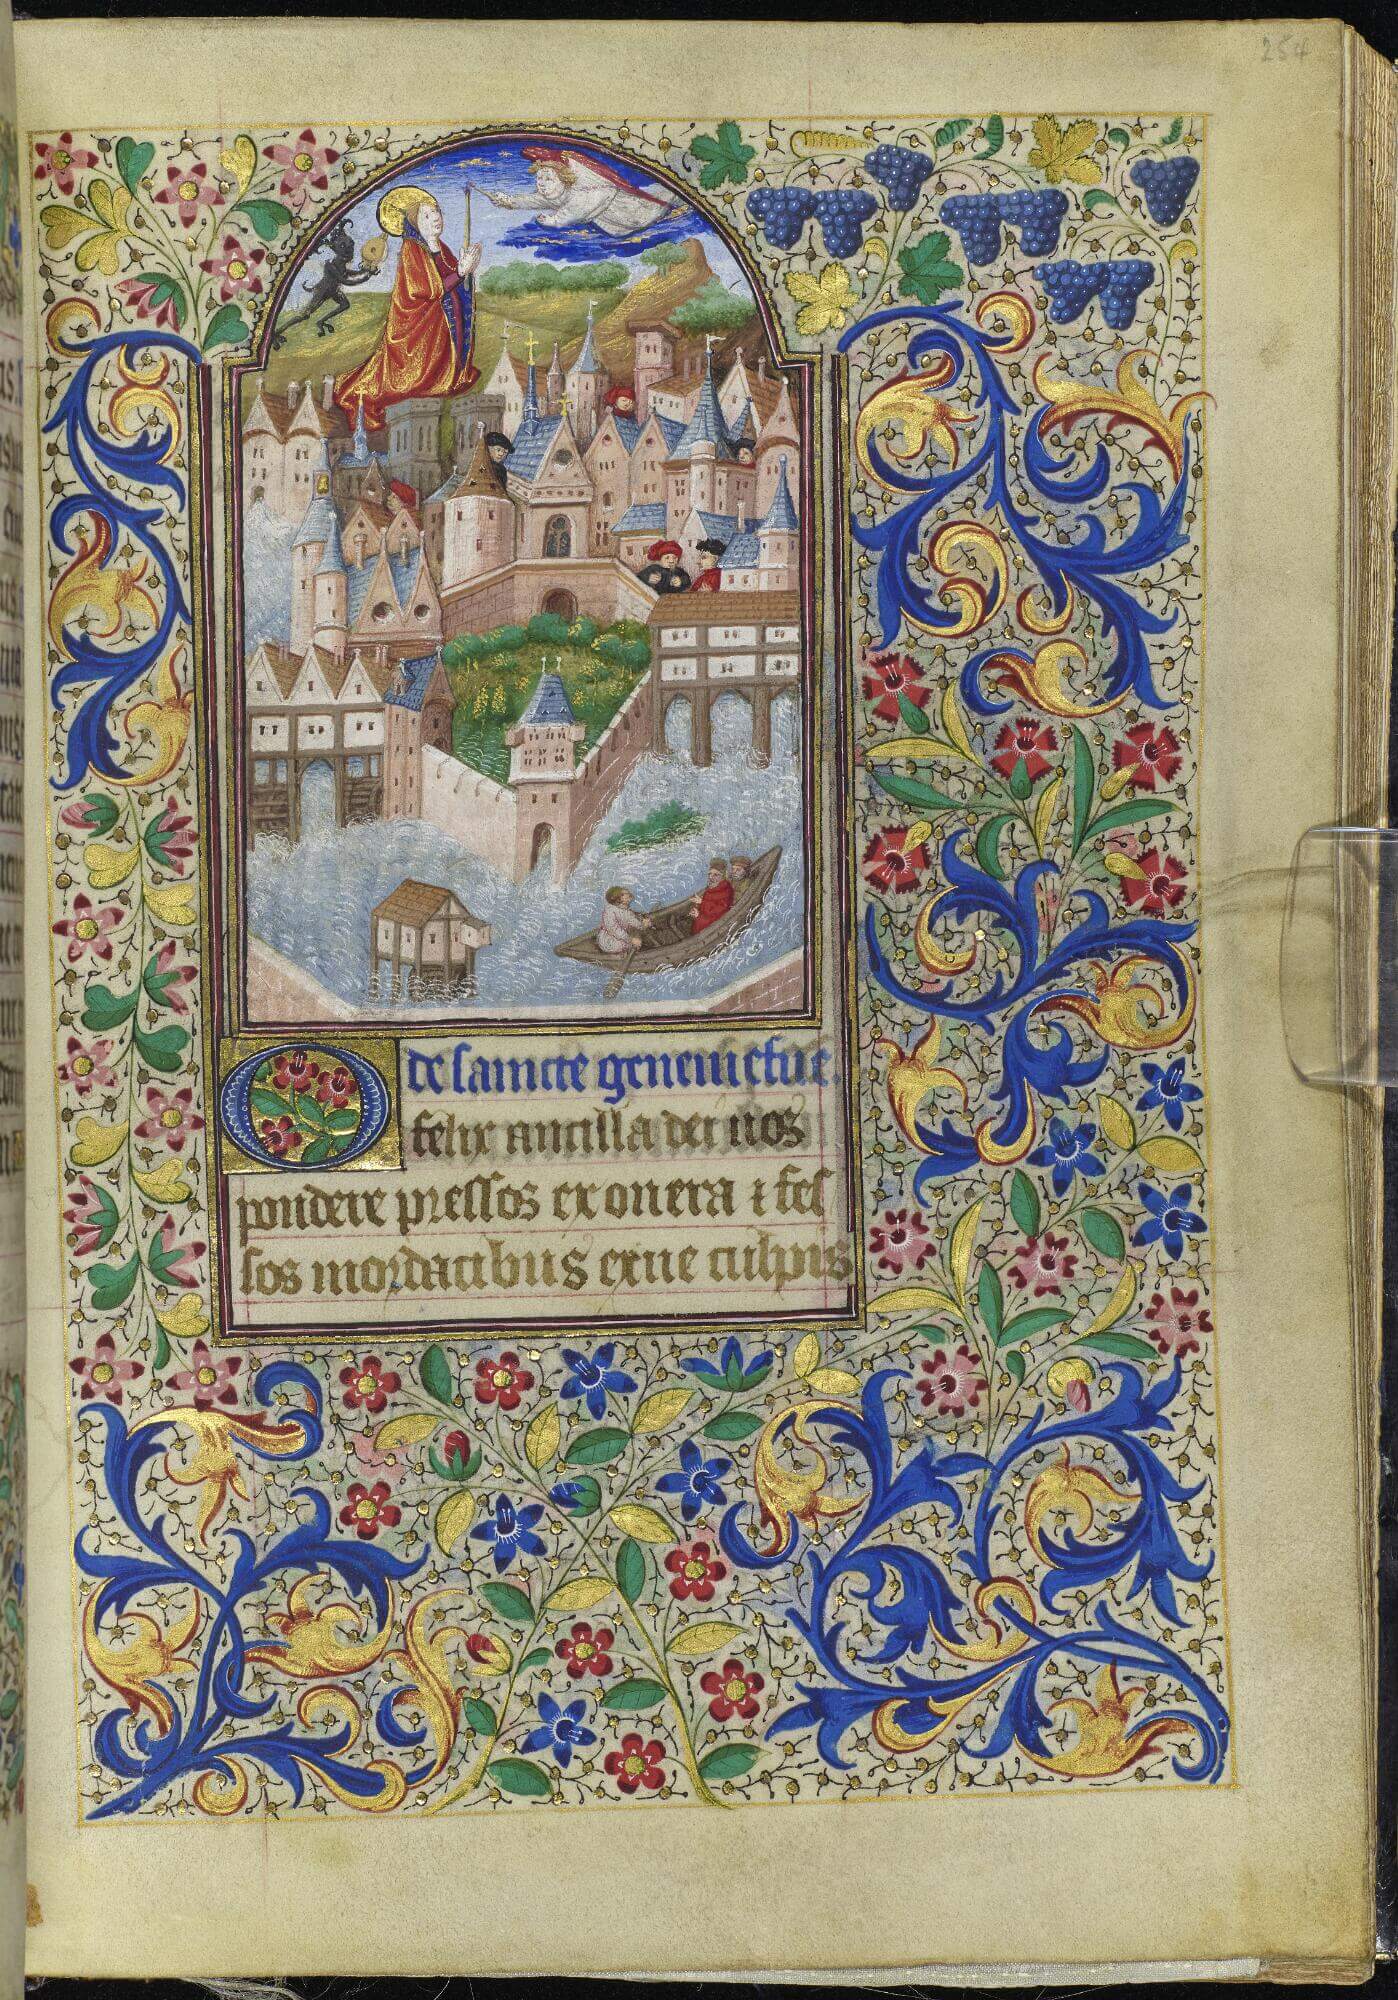 254
de saincte geneuiefue.
O felix ancilla dei nos
pondere pressos exonera ⁊ fes
sos mordacibus exue culpis